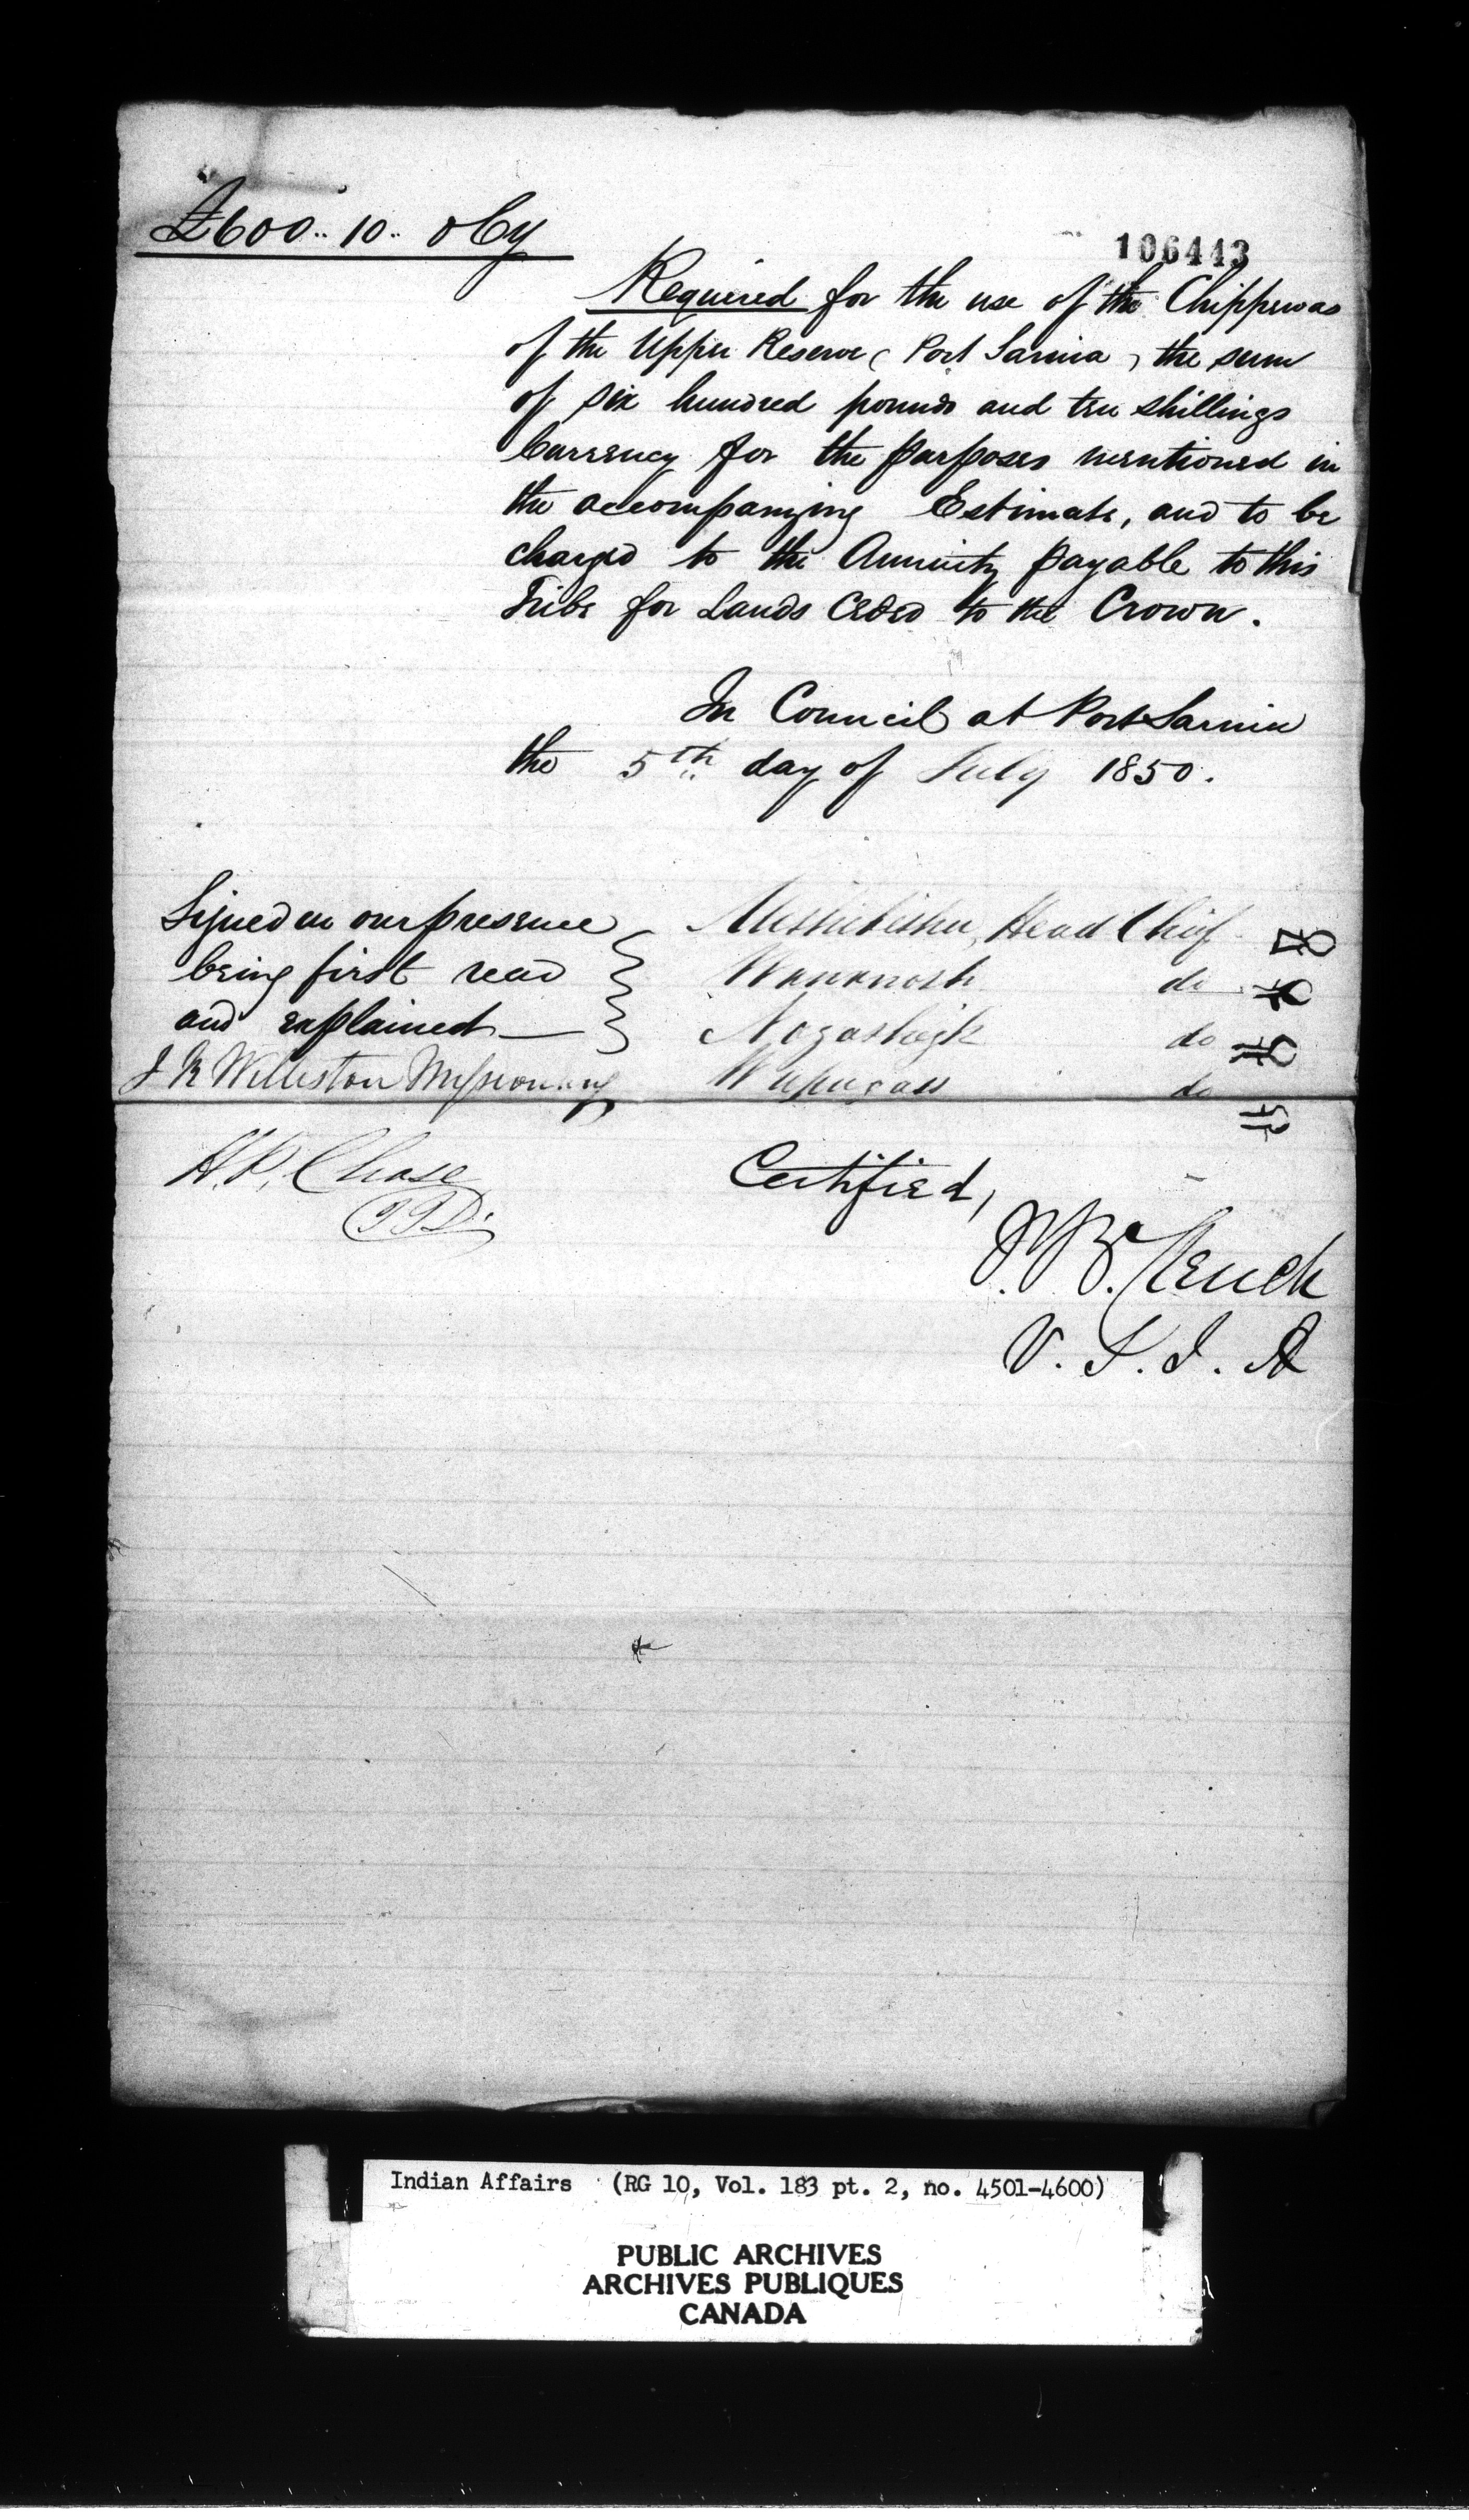 £600.. 10.. 0 Cy
106443
Required for the use of the Chippewas
of the Upper Reserve ( Port Sarnia ) the sum
of six hundred pounds and ten shillings
Currency for the purposes mentioned in
the accompanying Estimate, and to be
charged to the Annuity payable to this
Tribe for Lands Ceded to the Crown.
In Council at Port Sarnia
the 5th day of July 1850.
Signed in our presence
being first read
and explained
J K Williston Missionary
H. P. Chase
Head Chief
Wawanosh do
do
do
Certified,
J. B. Clench
V. S. I. A
Indian Affairs (RG 10, Vol. 183 pt. 2, no. 4501-4600)
PUBLIC ARCHIVES
ARCHIVES PUBLIQUES
CANADA